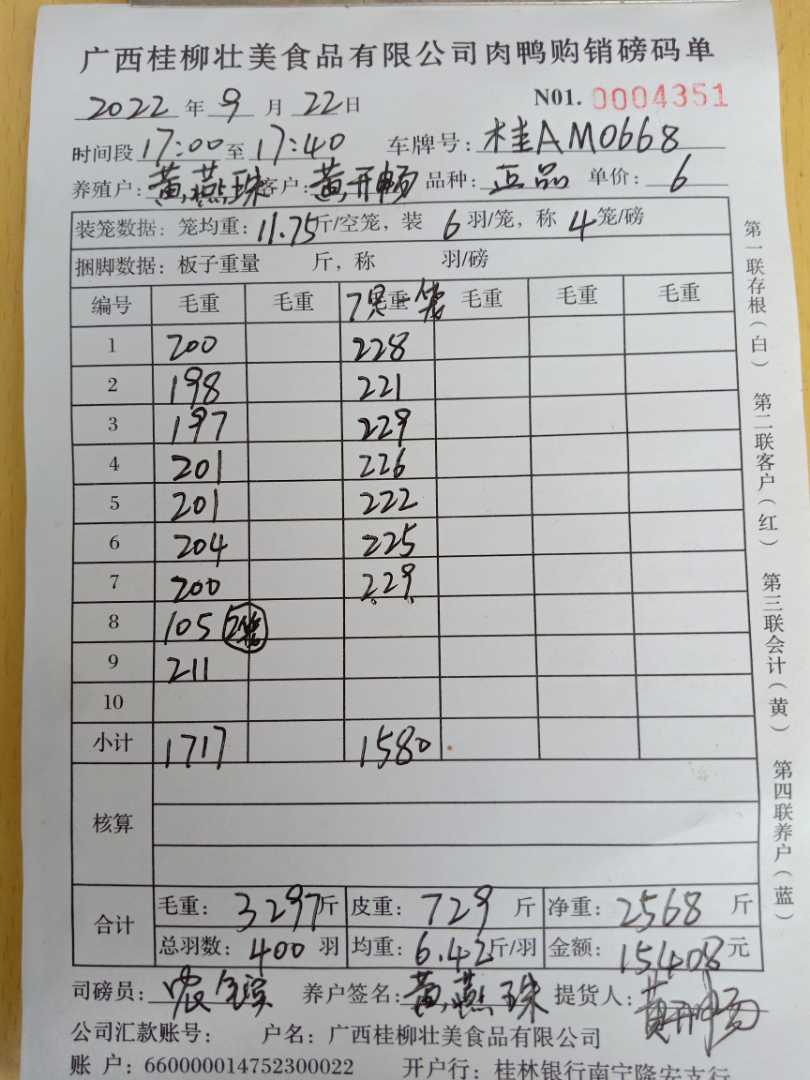 广西桂柳壮美食品有限公司肉鸭购销磅码单
2022年9月22日 N01. 0004351
时间段17:00至17:40 车牌号:桂AM0668
养殖户:黄燕珠客户:黄开畅 品种:正品 单价:6
装笼数据:笼均重:11.75斤/空笼,装6羽/笼,称4笼/磅
捆脚数据:板子重量 斤,称 羽/磅
编号 毛重 毛重 7只毛重一笼 毛重 毛重 毛重
1 200 228
2 198 221
3 197 229
4 201 226
5 201 222
6 204 225
7 200 229
8 105 2笼
9 211
10
小计 1717 1580
核算
合计 毛重:3297斤 皮重:729斤 净重:2568斤
总羽数:400羽 均重:6.42斤/羽 金额:15408元
司磅员: 养户签名:黄燕珠 提货人:黄开畅
公司汇款账号: 户名:广西桂柳壮美食品有限公司
账 户:660000014752300022 开户行:桂林银行南宁隆安支行
第一联存根(白) 第二联客户(红) 第三联会计(黄) 第四联养户(蓝)